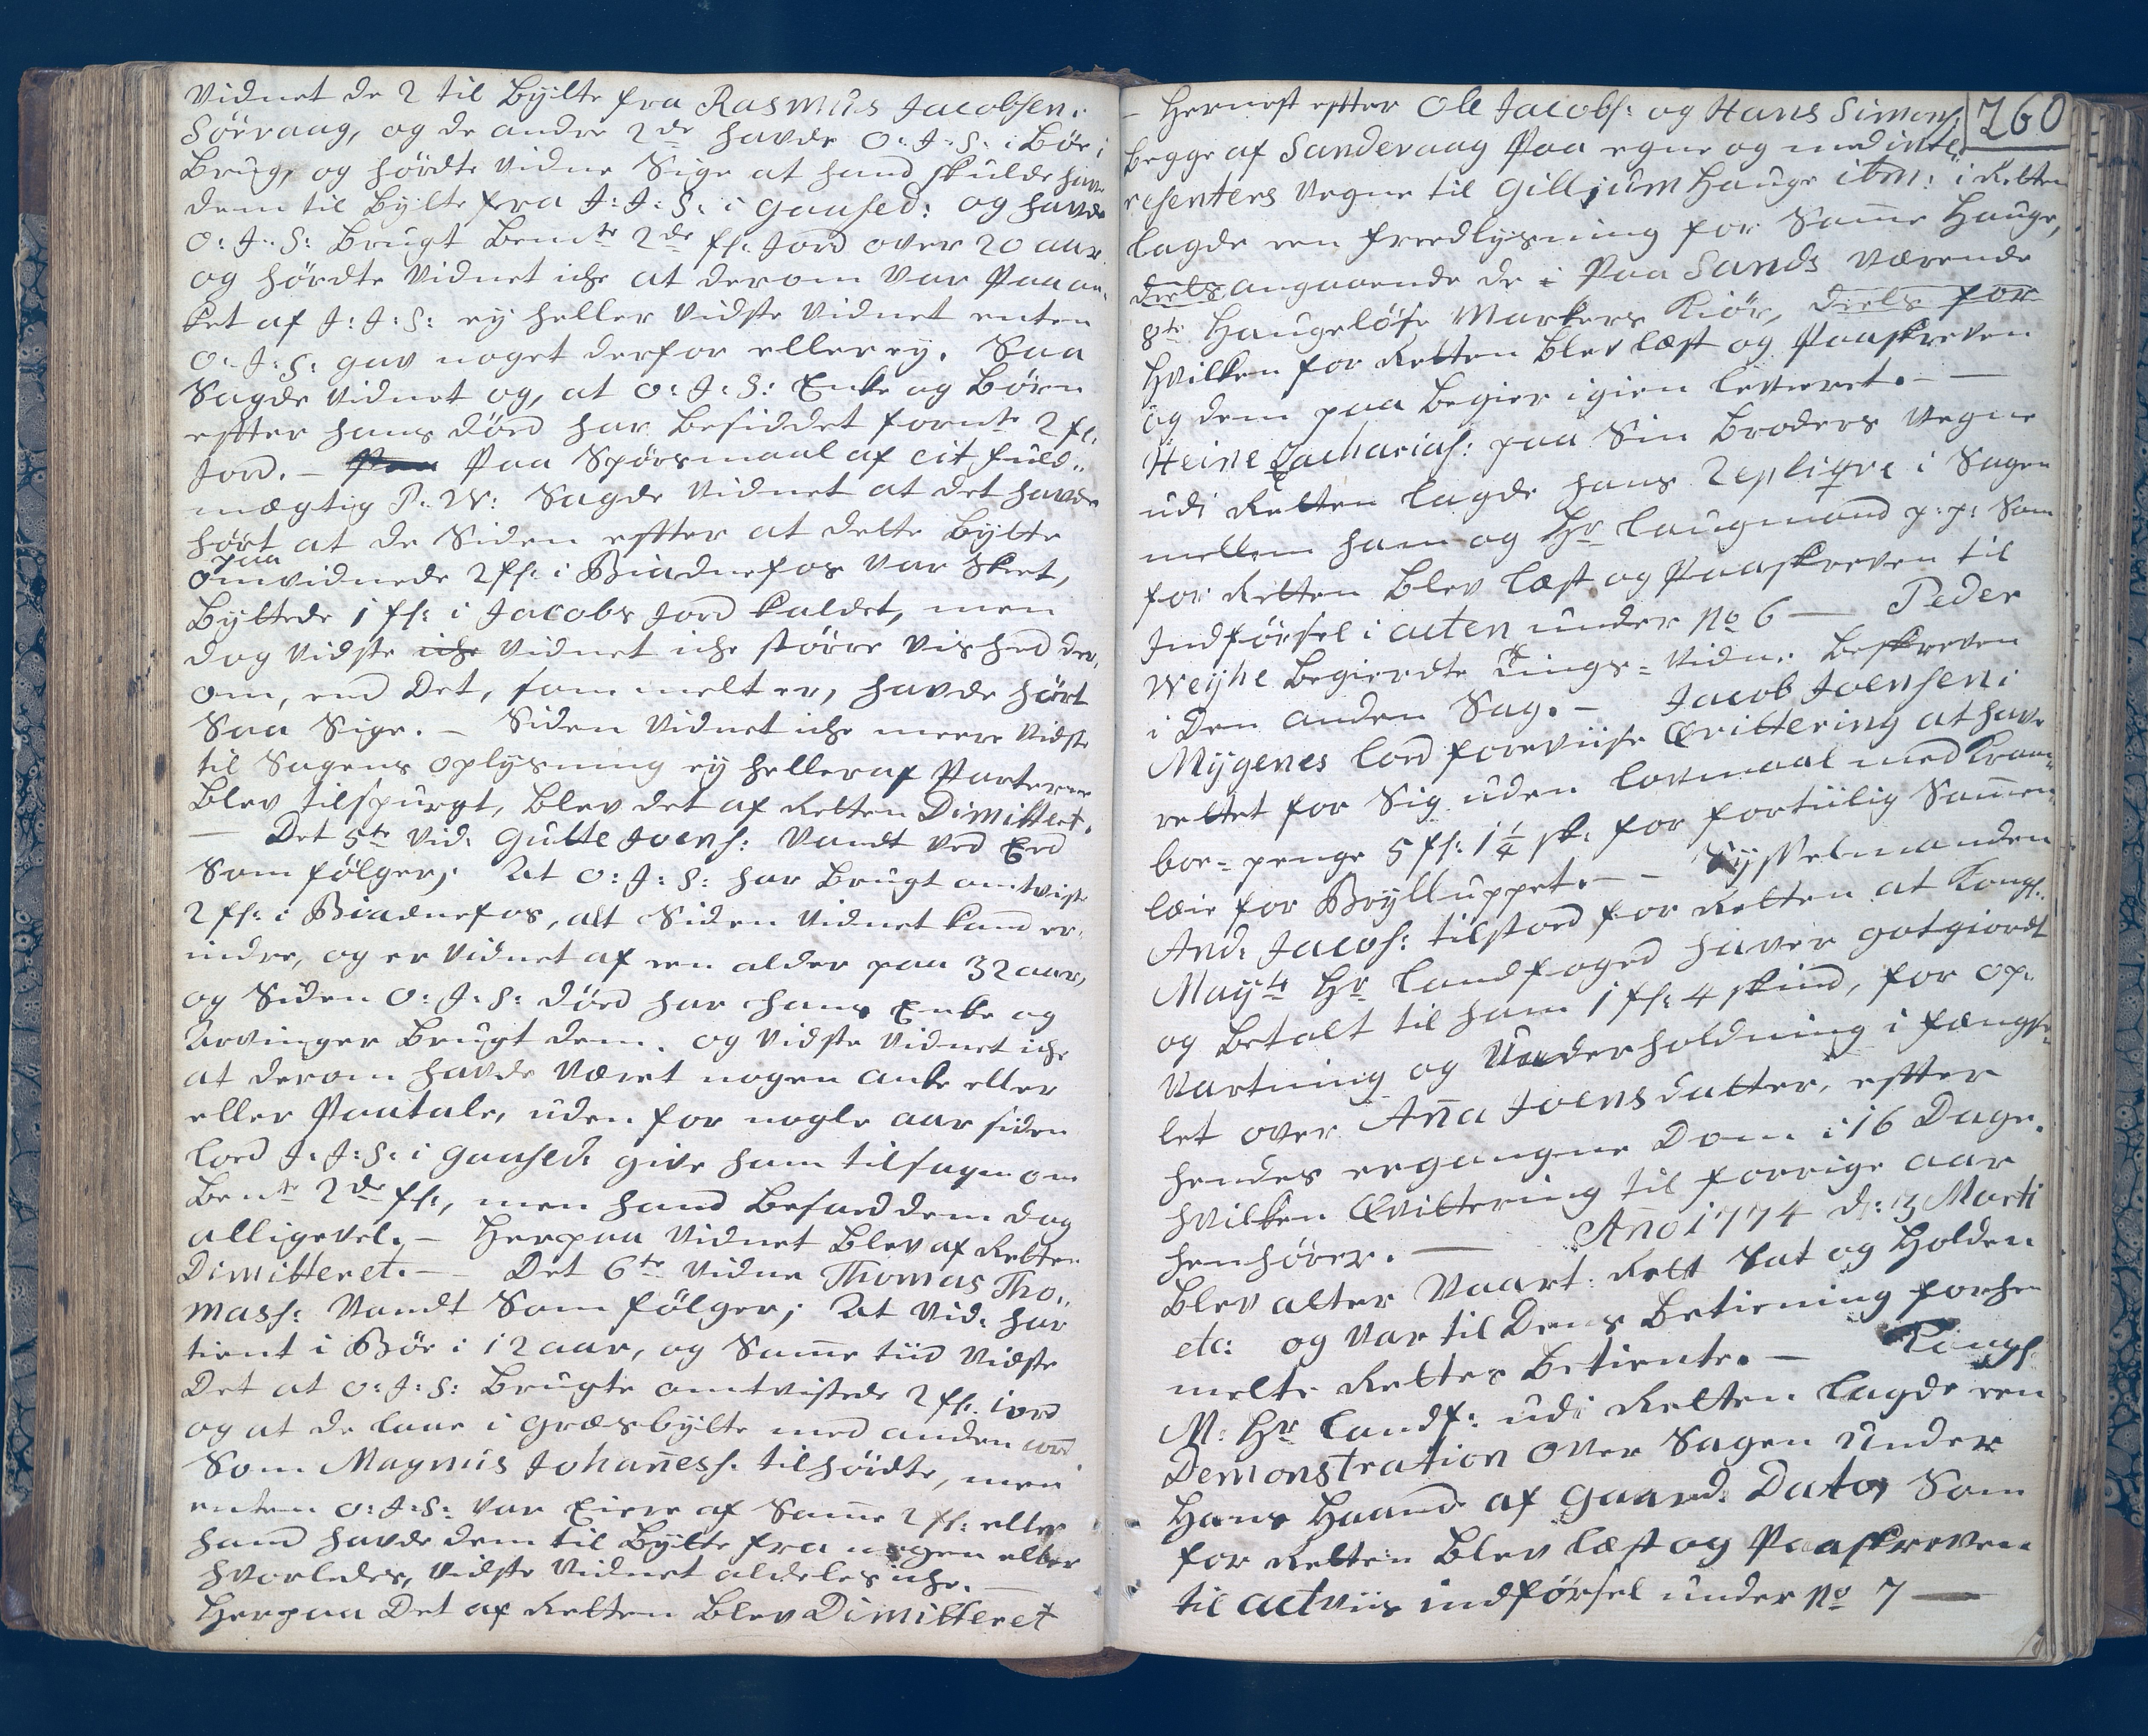 Vidnet de 2 til Bÿlte fra Rasmus Jacobsen i
Sörvaag, og de andre 2de havde O: J: S: i Bör i
Brug, og hördte Vidne Sige at hand skulde have
dem til Bÿlte fra J: J: S: i Gaased: og havde
O: J: S: Brugt Bemte 2de fl: Jord over 20 aar
og hördte Vidnet iche at derom var Paaan„
ket af J: J: S: eÿ heller Vidste Vidnet enten
O: J: S: gav noget derfor eller eÿ. Saa
Sagde Vidnet og, at O: J: S: Enke og Börn
efter hans död har Besiddet fornte 2 fl:
Jord. — Paa Spörsmaal af Cit: fuld„
mægtig P: W: Sagde Vidnet at det havde
hört at de Siden efter at dette Bÿlte
Paa
omvidnede 2 fl: i Biadnefos var Skeet,
Bÿltede 1 fl: i Jacobs Jord kaldet, men
dog Vidste iche Vidnet iche större Vished der„
om, end Det, som melt er, havde hört
Saa Sige. — Siden Vidnet iche meere Vidste
til Sagens oplÿsning eÿ heller af Parterne
Blev tilspurgt, Blev det af Retten Dimitteret.
— Det 5te Vid: Gutte Joens: Vandt ved Eed
Som fölger; At O: J: S: har Brugt omtviste
2 fl: i Biadnefos, alt Siden Vidnet kand er„
indre, og er Vidnet af een alder paa 32 aar,
og Siden O: J: S: död har hans Enke og
Arvinger Brugt dem. og Vidste Vidnet iche
at derom havde Været nogen anke eller
eller Paatale, uden for nogle aar siden
lod J: J: S: i Gaased: give ham tilsagn om
Bemte 2de fl:, men hand Besad dem dog
alligevel. — Herpaa Vidnet Blev af Retten
Dimitteret. — Det 6te Vidne Thomas Tho„
mass: Vandt Som fölger; At Vid: har
tient i Bör i 12 aar, og Same tiid Vidste
Det at O: J: S: Brugte omtvistede 2 fl: iord
og at de laae i Græsbÿlte med anden iord
Som Magnus Johaness: tilhördte, men
enten O: J: S: var Eiere af Same 2 fl: eller
hand havde dem til Bÿlte fra nogen eller
hvorledes, Vidste Vidnet aldeles iche. —
Herpaa Det af Retten Blev Dimitteret
260
— Hernest efter Ole Jacobs: og Hans Simons:
begge af Sandevaag Paa egne og med inte„
resenters Vegne til Gilljum Hauge ibm: i Retten
lagde een fredlÿsning for Same Hauge,
deels angaaende de i Paa Sands Værende
8te Haugelöse Markers Kiör, deels for
Hvilken for Retten Blev læst og Paaskreven
og dem paa Begier igien leveret. —
Heine Zacharias: paa Sin Broders Vegne
udi Retten lagde hans Repliqve i Sagen
mellem ham og Hr laugmand p: p: Som
for Retten Blev læst og Paaskreven til
Indförsel i acten under No 6 — Peder
Weÿhe Begierdte Tings= Vidne Beskreven
i Den anden Sag. — Jacob Joensen i
Mÿgenes lod foreviise Qvittering at have
rettet for Sig uden lovmaal med Kram„
boe= penge 5 fl: 1 1/4 sk: for fortiilig Samen„
læie for Brÿlluppet. — Sÿsselmanden
And: Jacobs: tilstod for Retten at Kongl:
Maÿts Hr Landfoged haver gotgiordt
og Betalt til ham 1 fl: 4 skind, for op„
vartning og Underholdning i fængs„
let over Ana Joensdatter, efter
hendes ergangne Dom i 16 Dage.
hvilken Qvittering til forrige aar
henhörer. — Ano 1774 d: 3 Marti
Blev atter Vaart: Rett Sat og Holden
etc: og Var til Dens Betiening forhen
melte Rettes Betiente. — Kongl:
M: Hr Landf: udi Retten lagde een
Demonstration over Sagen under
Hans Haand af Gaard: Dato, Som
for Retten Blev læst og Paaskreven
til actviis indförsel under No 7 —